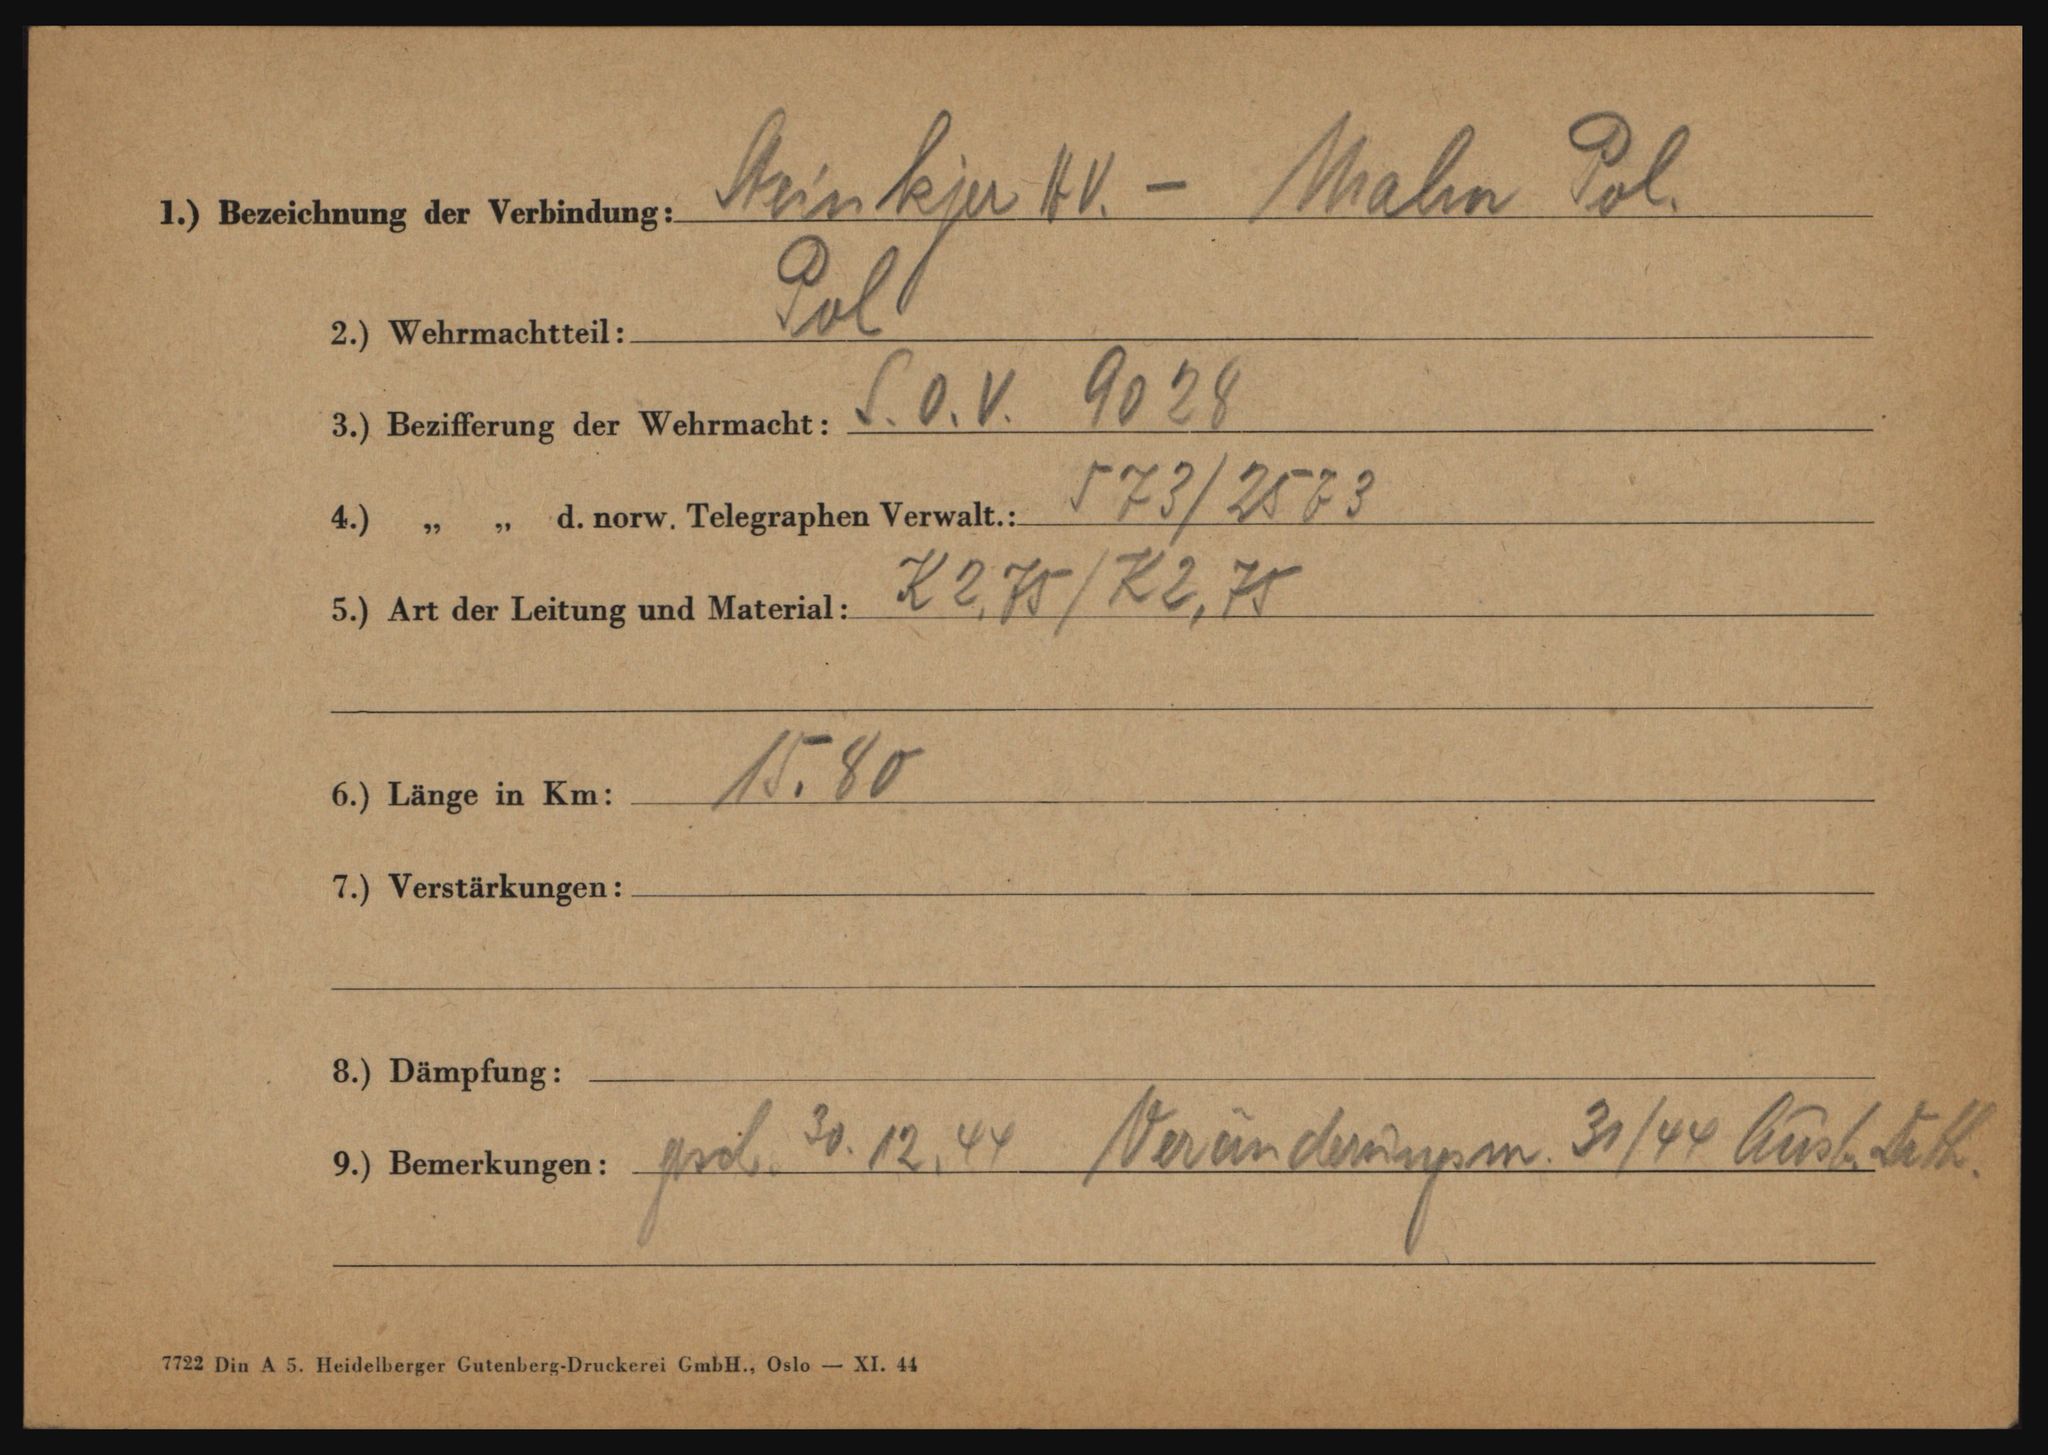 1.) Bezeichnung der Verbindung: Steinkjer H.V. – Malm Pol.
2.) Wehrmachtteil: Pol
3.) Bezifferung der Wehrmacht: S.O.V. 9028
4.) „ „ d. norw. Telegraphen Verwalt.: 573/2573
5.) Art der Leitung und Material: K 2,75/K 2,75
6.) Länge in Km: 15.80
7.) Verstärkungen:
8.) Dämpfung:
9.) Bemerkungen: 30.12.44 Veränderungsm. 31/44
7722 Din A 5. Heidelberger Gutenberg-Druckerei GmbH., Oslo — XI. 44